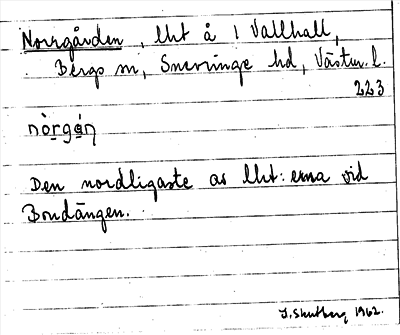 Norrgården, lht å 1 Vallhall,
Bergs sn, Snevringe hd, Västm. l.
223
nòrgán
Den nordligaste av lht:erna vid
Bondängen.
1962.